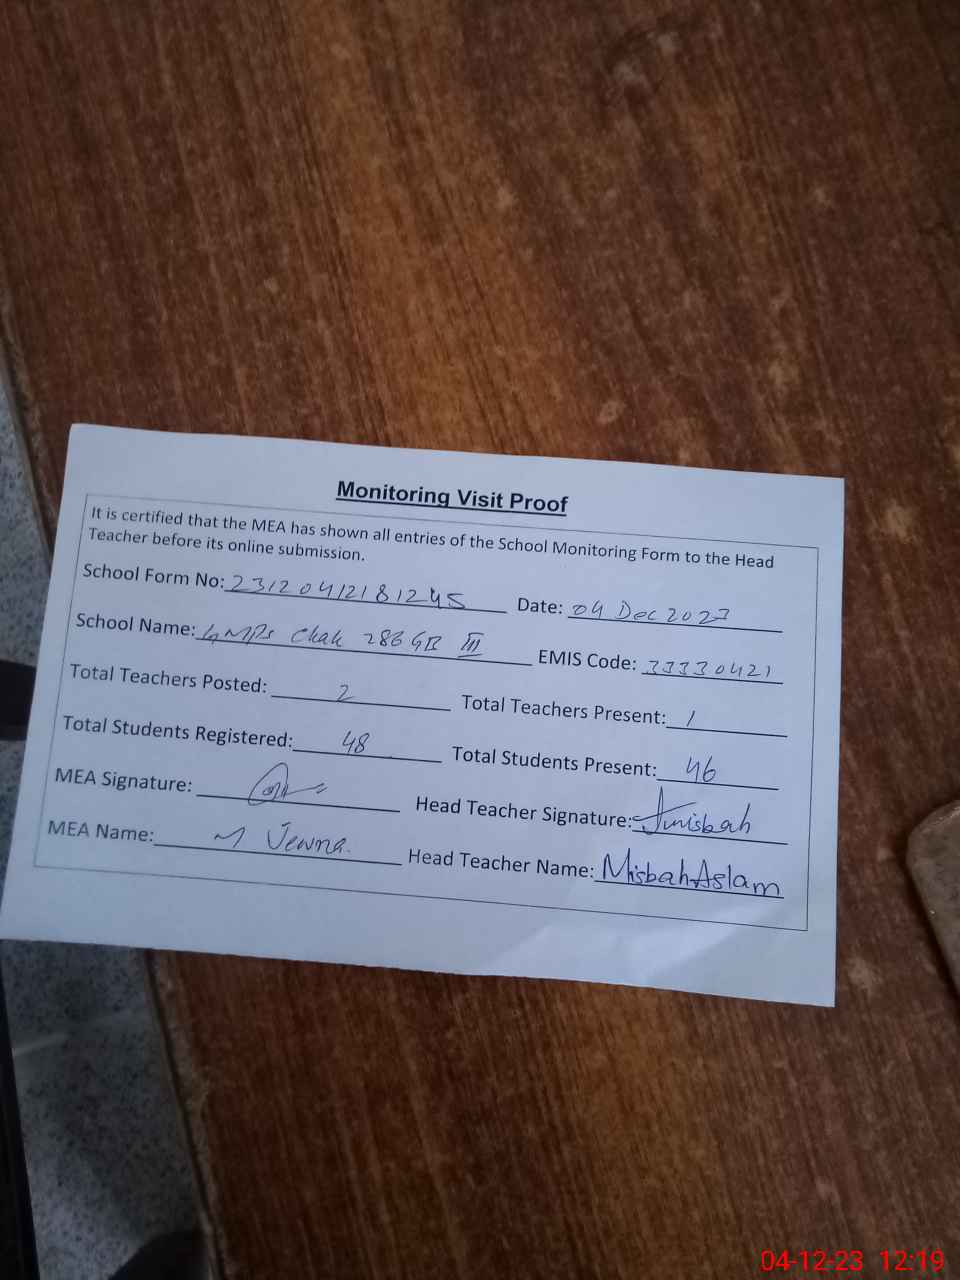 Monitoring Visit Proof
It is certified that the MEA has shown all entries of the School Monitoring Form to the Head
Teacher before its online submission.
School Form No: 23120412181245 Date: 04 Dec 2023
School Name: GMPS Chak 286 GB III EMIS Code: 33330421
Total Teachers Posted: 2 Total Teachers Present: 1
Total Students Registered: 48 Total Students Present: 46
MEA Signature: Head Teacher Signature: Amisbah
MEA Name: M Head Teacher Name: Misbah Aslam
04-12-23 12:19